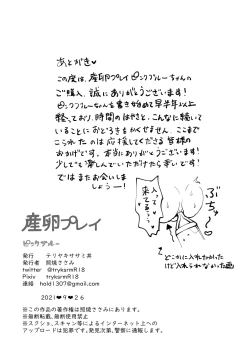 あとがき♥
この度は、産卵プレイピンクブルーちゃんの
ご購入、誠にありがとうございます!
ピンクブルーちゃんを書き始めて早半年以上
経っており、時間のはやさと、こんなに描いて
いることにおどろきをかくせません。ここまで
こられたのは応援してくださる皆様の
おかげです。本当にありがとうございます!
少しでも楽しんでいただけたら幸いです!
ではまたお会いしま
しょうー!
ぶちゅ〜
入って
来てるぅ…
どこかに入れたかった
けど入れられなかった画
産卵プレイ
ピンクブルー
発行 テリヤキササミ丼
発行者 照焼ささみ
twitter @tryksrmR18
Pixiv tryksrmR18
連絡 hold1307@gmail.com
2021♥9♥26
※この作品の著作権は照焼ささみにあります。
※無断転載、無断使用禁止
※スクショ、スキャン等によるインターネット上への
アップロードは犯罪です。発見次第、警察に通報します。